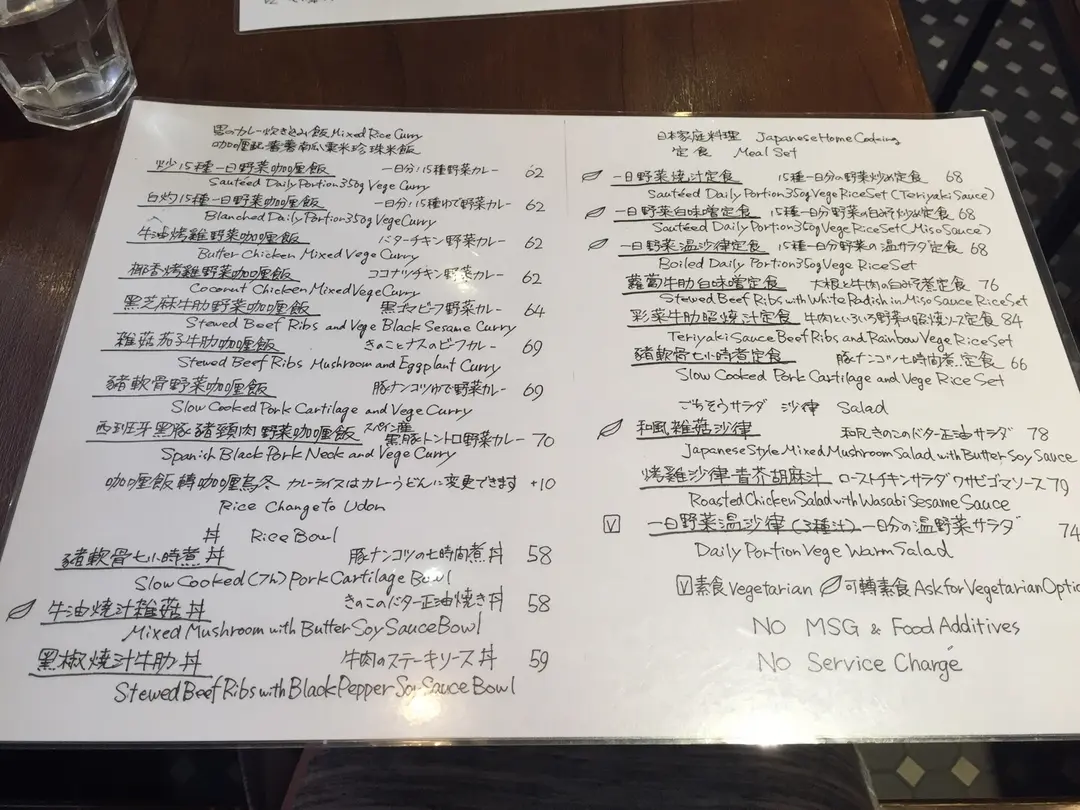 黒のカレー炊き込み飯 Mixed Rice Curry
咖喱配薯蓉南瓜粟米珍珠米飯
炒15種一日野菜咖喱飯 一日分!15種野菜カレー 62
Sautéed Daily Portion 350g Vege Curry
白灼15種一日野菜咖喱飯 一日分!15種ゆで野菜カレー 62
Blanched Daily Portion 350g Vege Curry
牛油烤雞野菜咖喱飯 バターチキン野菜カレー 62
Butter Chicken Mixed Vege Curry
椰香烤雞野菜咖喱飯 ココナツチキン野菜カレー 62
Coconut Chicken Mixed Vege Curry
黑芝麻牛肋野菜咖喱飯 黒ゴマビーフ野菜カレー 64
Stewed Beef Ribs and Vege Black Sesame Curry
雜菇茄子牛肋咖喱飯 きのことナスのビーフカレー 69
Stewed Beef Ribs Mushroom and Eggplant Curry
豬軟骨野菜咖喱飯 豚ナンコツゆで野菜カレー 69
Slow Cooked Pork Cartilage and Vege Curry
西班牙黑豚豬頸肉野菜咖喱飯 スペイン産黒豚トントロ野菜カレー 70
Spanish Black Pork Neck and Vege Curry
咖喱飯轉咖喱烏冬 カレーライスはカレーうどんに変更できます +10
Rice Change to Udon
丼 Rice Bowl
豬軟骨七小時煮丼 豚ナンコツの七時間煮丼 58
Slow Cooked (7h) Pork Cartilage Bowl
牛油燒汁雜菇丼 きのこのバター正油焼き丼 58
Mixed Mushroom with Butter Soy Sauce Bowl
黑椒燒汁牛肋丼 牛肉のステーキソース丼 59
Stewed Beef Ribs with Black Pepper Soy Sauce Bowl
日本家庭料理 Japanese Home Cooking
定食 Meal Set
一日野菜燒汁定食 15種一日分の野菜炒め定食 68
Sautéed Daily Portion 350g Vege Rice Set (Teriyaki Sauce)
一日野菜白味噌定食 15種一日分野菜の白みそ炒め定食 68
Sautéed Daily Portion 350g Vege Rice Set (Miso Sauce)
一日野菜温沙律定食 15種一日分野菜の温サラダ定食 68
Boiled Daily Portion 350g Vege Rice Set
蘿蔔牛肋白味噌定食 大根と牛肉の白みそ煮定食 76
Stewed Beef Ribs with White Radish in Miso Sauce Rice Set
彩菜牛肋照燒汁定食 牛肉といろいろ野菜の照焼ソース定食 84
Teriyaki Sauce Beef Ribs and Rainbow Vege Rice Set
豬軟骨七小時煮定食 豚ナンコツ七時間煮定食 66
Slow Cooked Pork Cartilage and Vege Rice Set
ごちそうサラダ 沙律 Salad
和風雜菇沙律 和风きのこのバター正油サラダ 78
Japanese Style Mixed Mushroom Salad with Butter Soy Sauce
烤雞沙律青芥胡麻汁 ローストチキンサラダワサビゴマソース 79
Roasted Chicken Salad with Wasabi Sesame Sauce
V 一日野菜温沙律(3種汁) 一日分の温野菜サラダ 74
Daily Portion Vege Warm Salad
V素食 Vegetarian 可轉素食 Ask for Vegetarian Optio
NO MSG & Food Additives
NO Service Charge